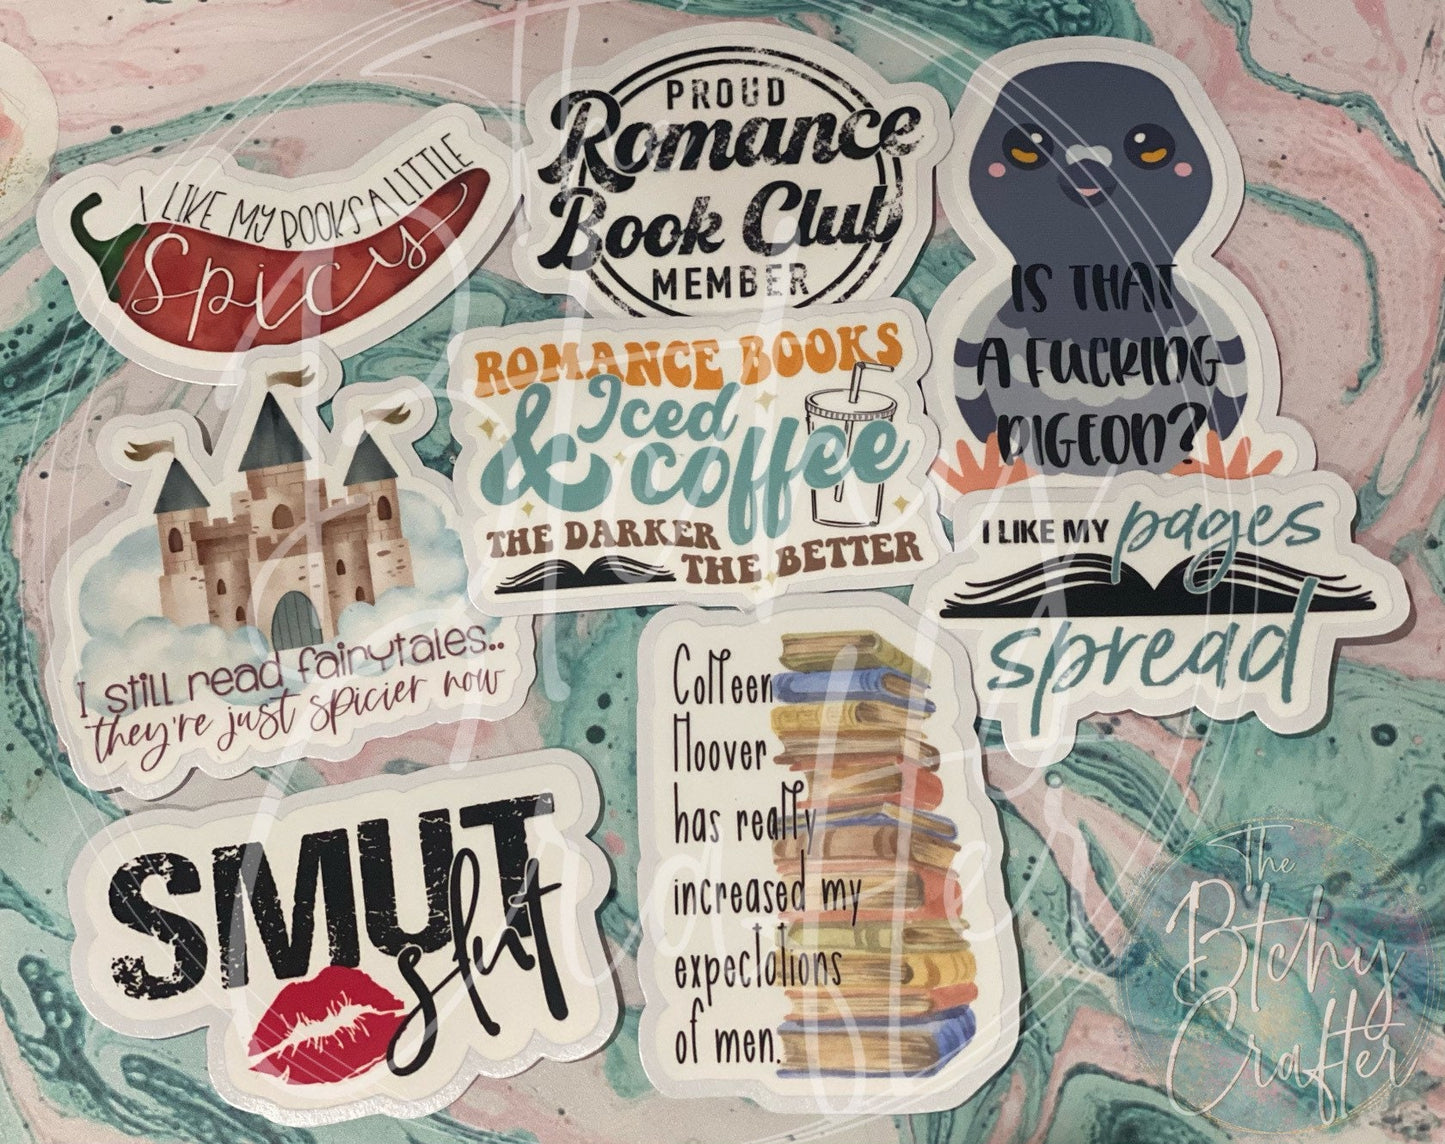 I LIKE MY BOOKS A LITTLE
Spicy
PROUD
Romance
Book Club
MEMBER
IS THAT
A FUCKING
PIGEON?
ROMANCE BOOKS
& Iced
coffee
THE DARKER
THE BETTER
I LIKE MY pages
spread
I still read fairytales..
they're just spicier now
SMUT
slut
Colleen
Hoover
has really
increased my
expectations
of men.
The
Btchy
Crafter
The
Btchy
Crafter